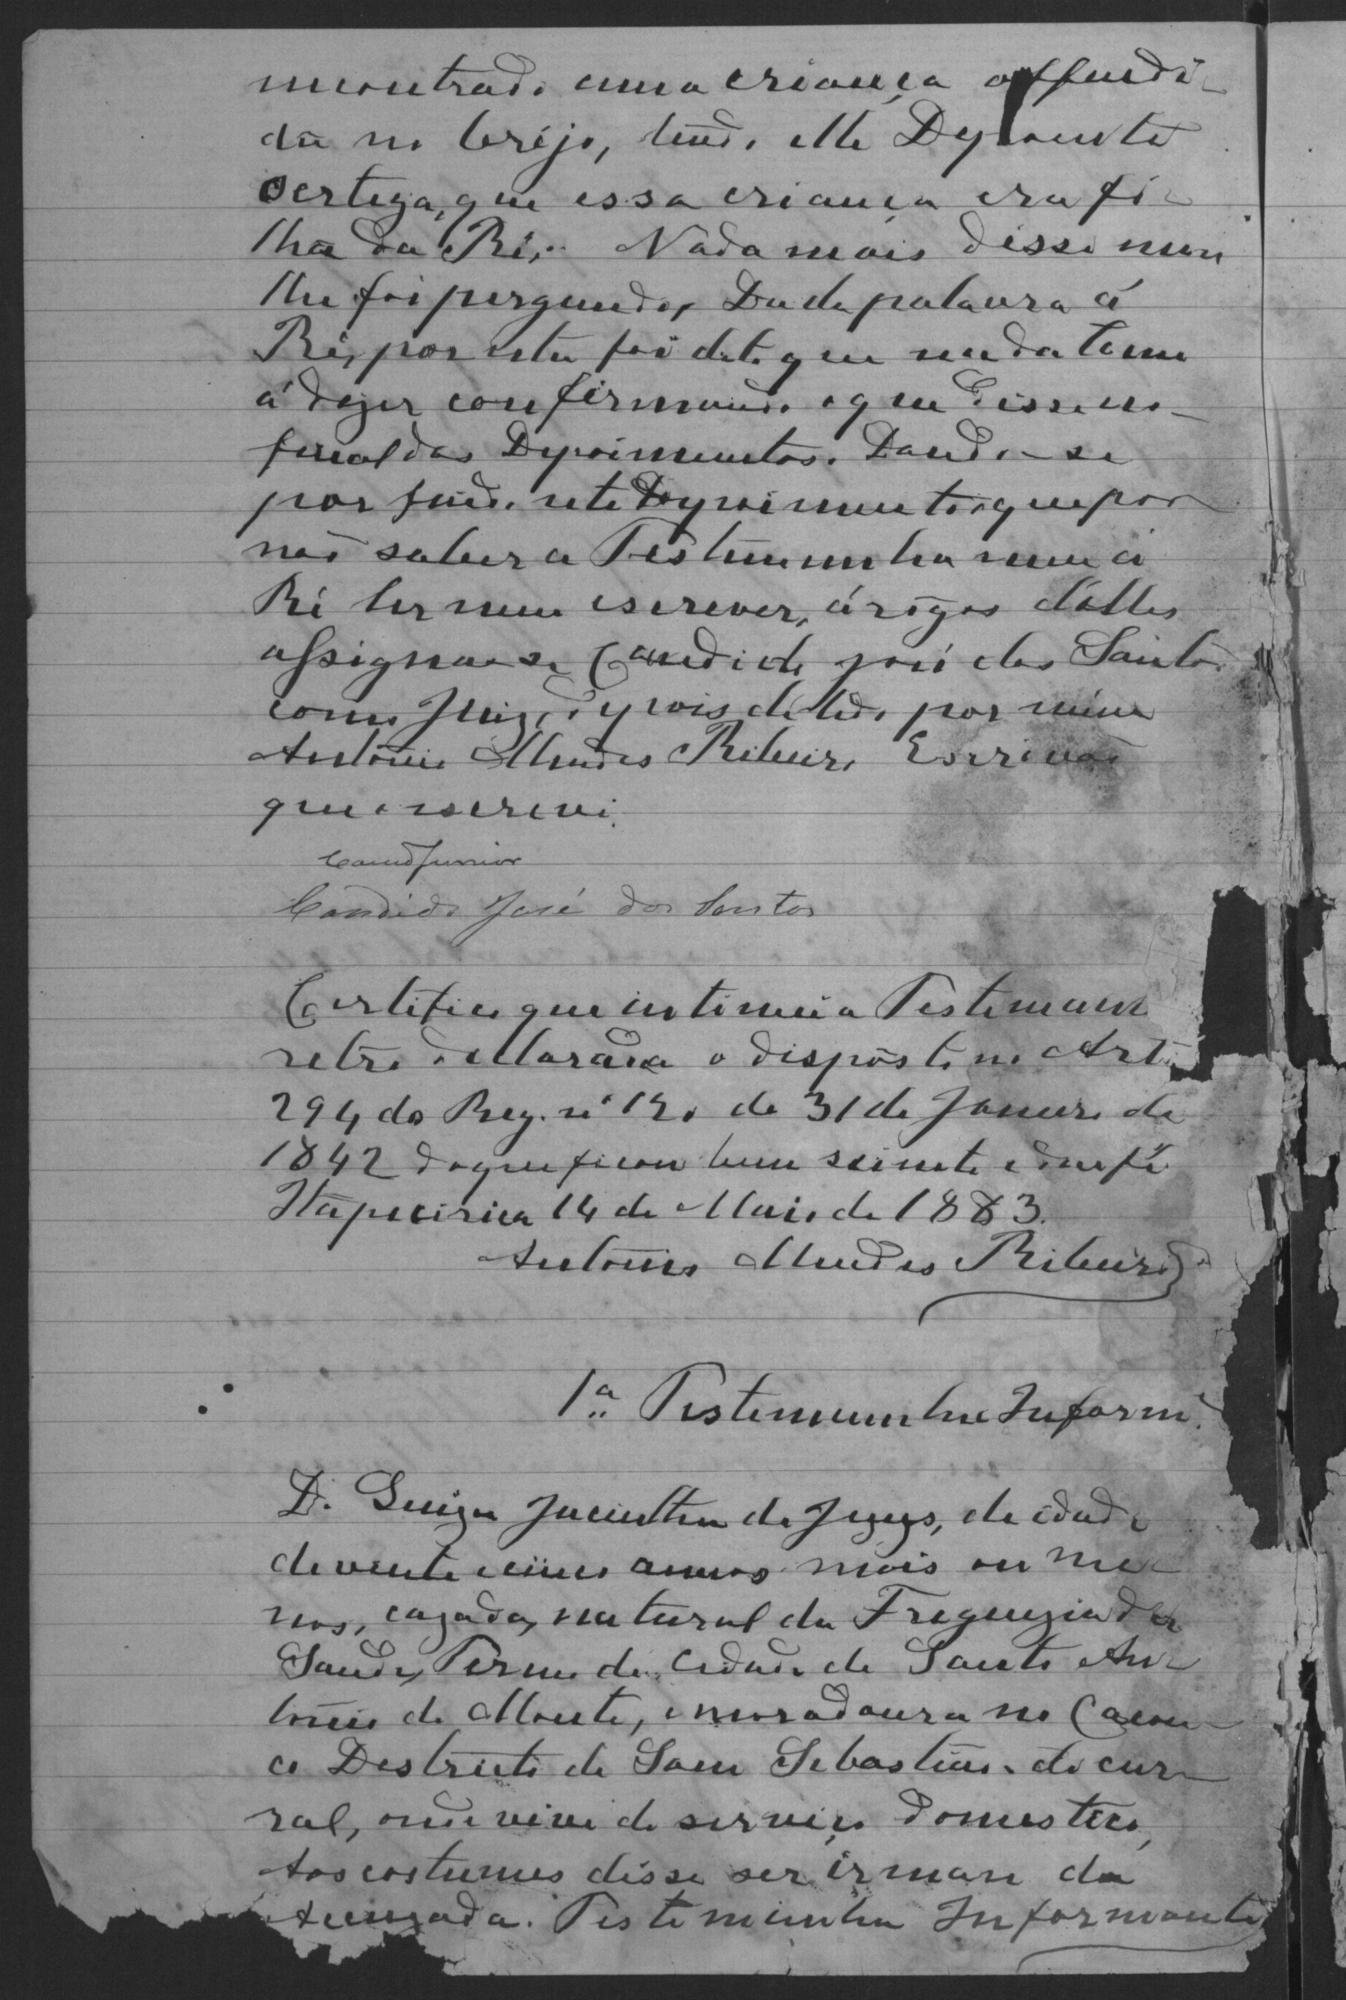 incontrado uma criança offendi-
da no brejo, tendo elle Depoente
certeza, que essa criança era fi-
lha da Ré. Nada mais disse nem
lhe foi pergundo, Dada palavra á
Ré, por esta foi dito que nada tem
á dizer confirmando o que disse no
final dos Depoimentos. Dando-se
por findo este Depoimento, que por
não saber a Testimunha nem a
Ré ler nem escrever, á rogos d'elles
assigna-se Candido José dos Santos
com o Juiz, depois de lido por mim
Antonio Mendes Ribeiro Escrivão
que o escrevi.
Candido José dos Santos
Certifico que intimei a Testimunh
retro declarada o disposto no Art.
294 do Reg. nº 120 de 31 de Janeiro de
1842 do que ficou bem sciente e dou fé
Itapecirica 14 de Maio de 1883.
Antonio Mendes Ribeiro
1ª Testimunha Inform.
D. Luiza Jacintha de Jezus, de idade
de vinte cinco annos mais ou me-
nos, cazada, natural da Freguezia da
Saude, Termo da Cidade de Santo An-
tonio do Monte, e moradoura no
Destricto de Sam Sebastião do cur-
ral, onde vive de serviço domestico,
Aos costumes disse ser irman da
Accuzada. Testimunha Informante